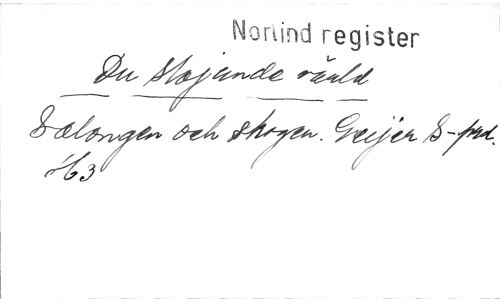 Norlind register
Du stojande värld
Salongen och skogen. Geijer S-prd.
H3